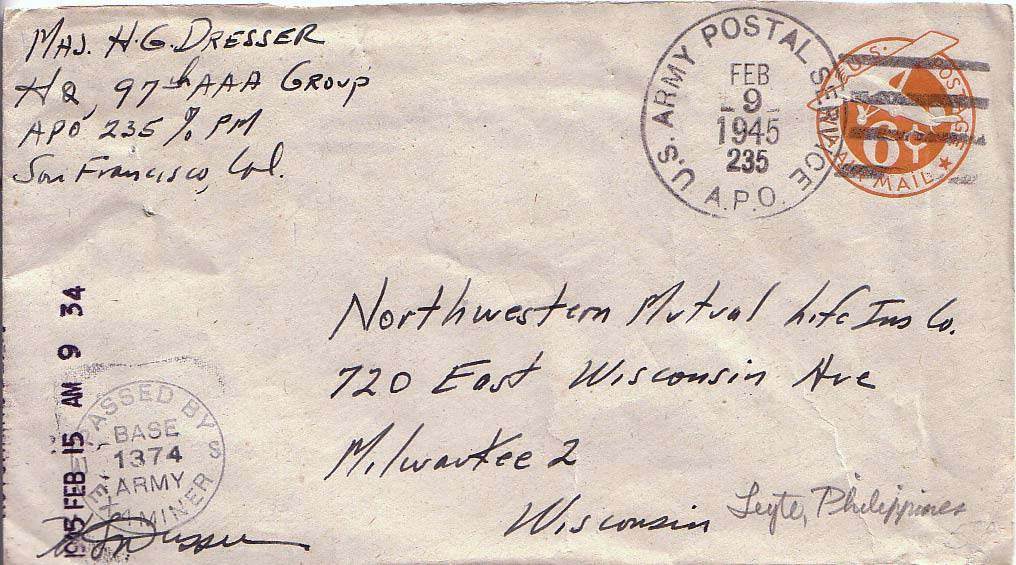 Maj. H.G. Dresser
HQ, 97th AAA Group
APO 235 % PM
San Francisco, Cal.
U.S. ARMY POSTAL SERVICE
FEB
9
1945
235
A.P.O.
U.S. POSTAGE
6¢
AIR MAIL
Northwestern Mutual Life Ins Co.
720 East Wisconsin Ave
Milwaukee 2
Wisconsin
Leyte, Philippines
1945 FEB 15 AM 9 34
PASSED BY
BASE
1374
ARMY
EXAMINER
HG Dresser